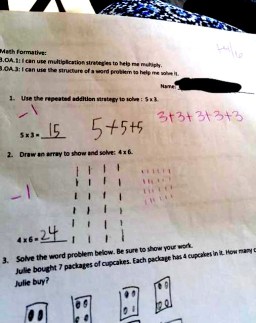 4/6
Math Formative:
3.OA.1: I can use multiplication strategies to help me multiply.
3.OA.3: I can use the structure of a word problem to help me solve it.
Name:
1. Use the repeated addition strategy to solve: 5 x 3.
-1
3+3+3+3+3
5 x 3 = 15 5+5+5
2. Draw an array to show and solve: 4 x 6.
-1
4 x 6 = 24
3. Solve the word problem below. Be sure to show your work.
Julie bought 7 packages of cupcakes. Each package has 4 cupcakes in it. How many c
Julie buy?